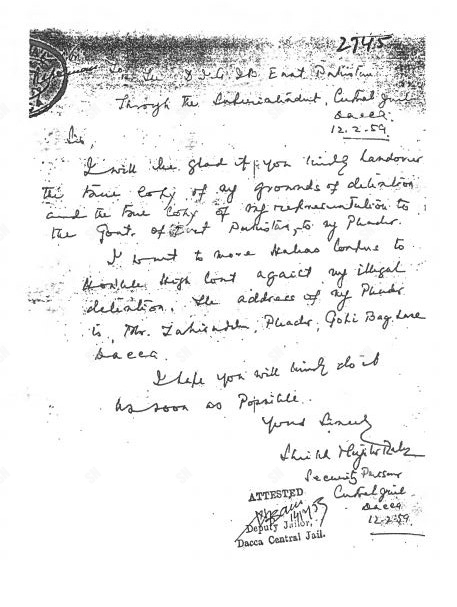 2745
To
The D.I.G. IB East Pakistan
Through the Superintendent, Central Jail
Dacca.
12.2.59
Sir,
I will be glad if you kindly handover
the true copy of my grounds of detention
and the true copy of my representation to
the Govt. of East Pakistan, to my Pleader.
I want to move Habeas Corpus to
Hon'ble High Court against my illegal
detention. The address of my Pleader
is, Mr. Zahiruddin, Pleader, Gopi Bag Lane
Dacca.
I hope you will kindly do it
as soon as Possible.
Yours Sincerely
Sheikh Mujibur Rahman
Security Prisoner
Central Jail
Dacca
12.2.59
ATTESTED
Deputy Jailor,
Dacca Central Jail.